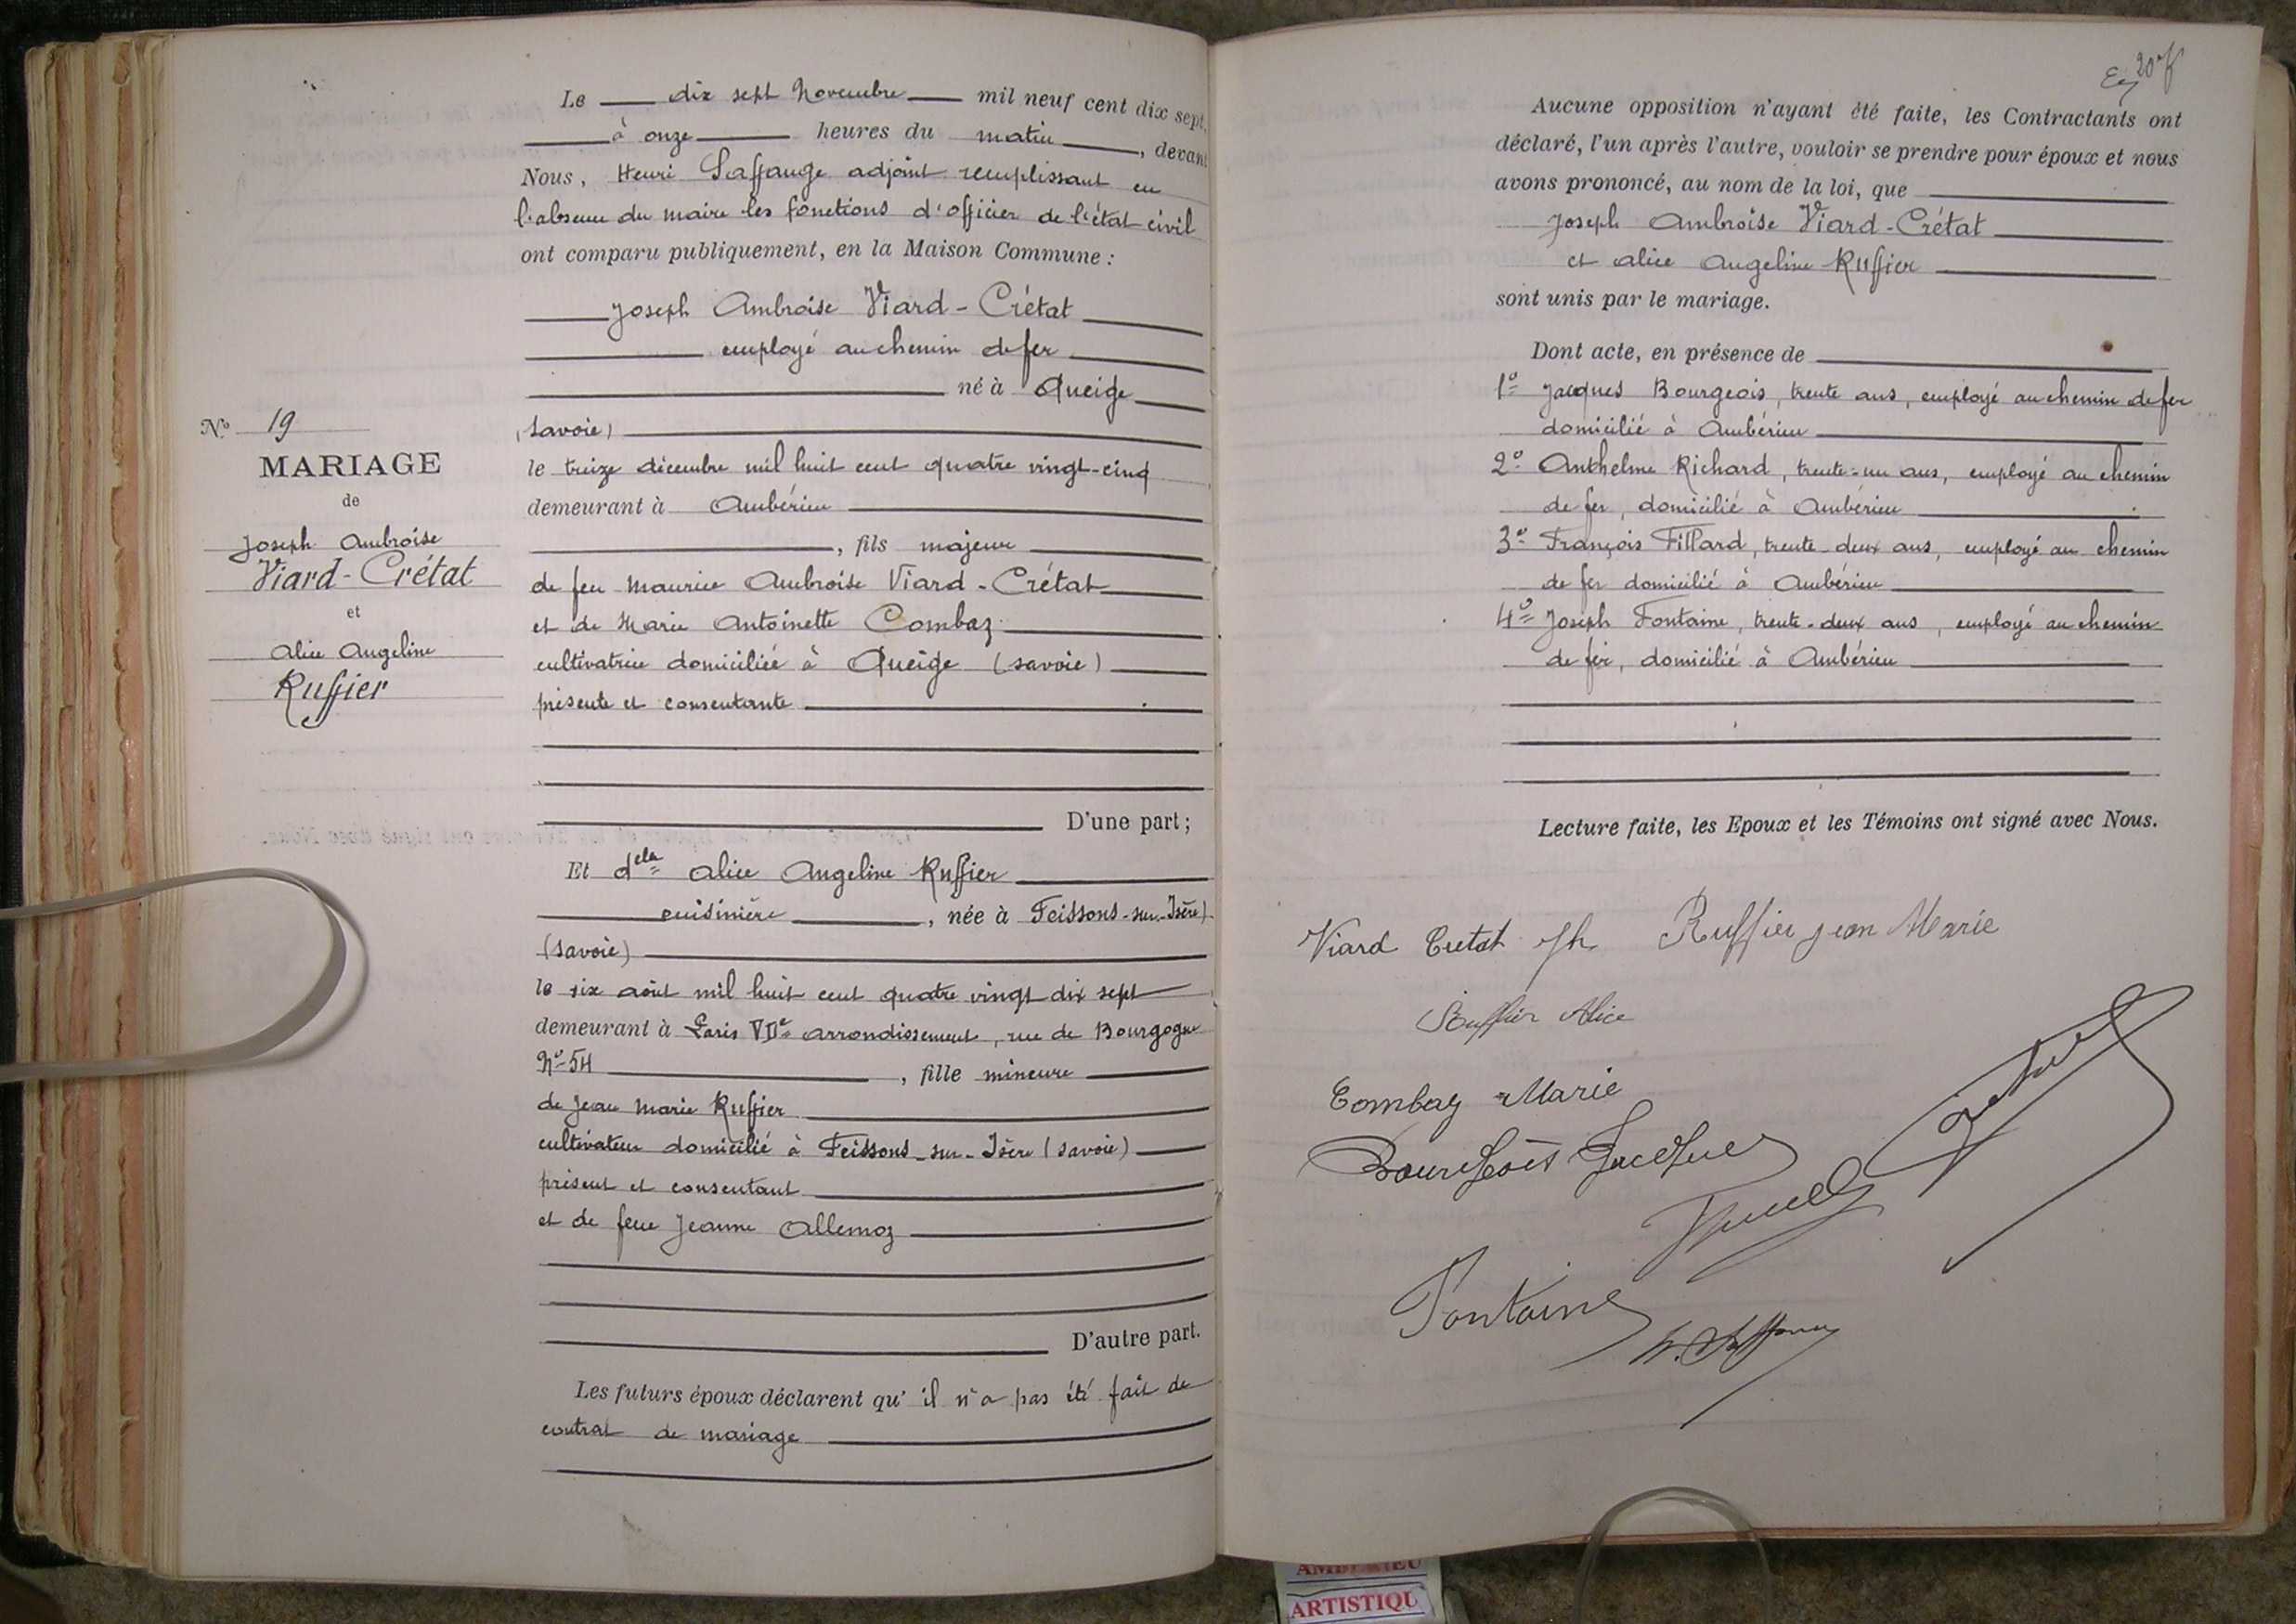 Le dix sept Novembre mil neuf cent dix sept,
à onze heures du matin, devant
Nous, Henri Laffange adjoint remplissant en
l'absence du maire les fonctions d'officier de l'état civil
ont comparu publiquement, en la Maison Commune :
Joseph Ambroise Viard-Crétat
employé au chemin de fer
né à Queige
(Savoie)
le treize décembre mil huit cent quatre vingt-cinq
demeurant à Ambérieu
, fils majeur
de feu Maurice Ambroise Viard-Crétat
et de Marie Antoinette Combaz
cultivatrice domiciliée à Queige (Savoie)
présente et consentante
D'une part ;
Et delle Alice Angeline Ruffier
cuisinière, née à Feissons-sur-Isère)
(Savoie)
le six août mil huit cent quatre vingt dix sept
demeurant à Paris VIIe arrondissement, rue de Bourgogne
No 54, fille mineure
de Jean Marie Ruffier
cultivateur domicilié à Feissons-sur-Isère (Savoie)
présent et consentant
et de feue Jeanne Allemoz
D'autre part.
Les futurs époux déclarent qu'il n'a pas été fait de
contrat de mariage
No 19
MARIAGE
de
Joseph Ambroise
Viard-Crétat
et
Alice Angeline
Ruffier
Aucune opposition n'ayant été faite, les Contractants ont
déclaré, l'un après l'autre, vouloir se prendre pour époux et nous
avons prononcé, au nom de la loi, que
Joseph Ambroise Viard-Crétat
et Alice Angeline Ruffier
sont unis par le mariage.
Dont acte, en présence de
1o Jacques Bourgeois, trente ans, employé au chemin de fer
domicilié à Ambérieu
2o Anthelme Richard, trente-un ans, employé au chemin
de fer, domicilié à Ambérieu
3o François Fillard, trente-deux ans, employé au chemin
de fer domicilié à Ambérieu
4o Joseph Fontaine, trente-deux ans, employé au chemin
de fer, domicilié à Ambérieu
Lecture faite, les Epoux et les Témoins ont signé avec Nous.
Viard Cretat Jh Ruffier Jean Marie
Ruffier Alice
Combaz Marie
Bourgeois Jacques
Fontaine
AMBERIEU
ARTISTIQU